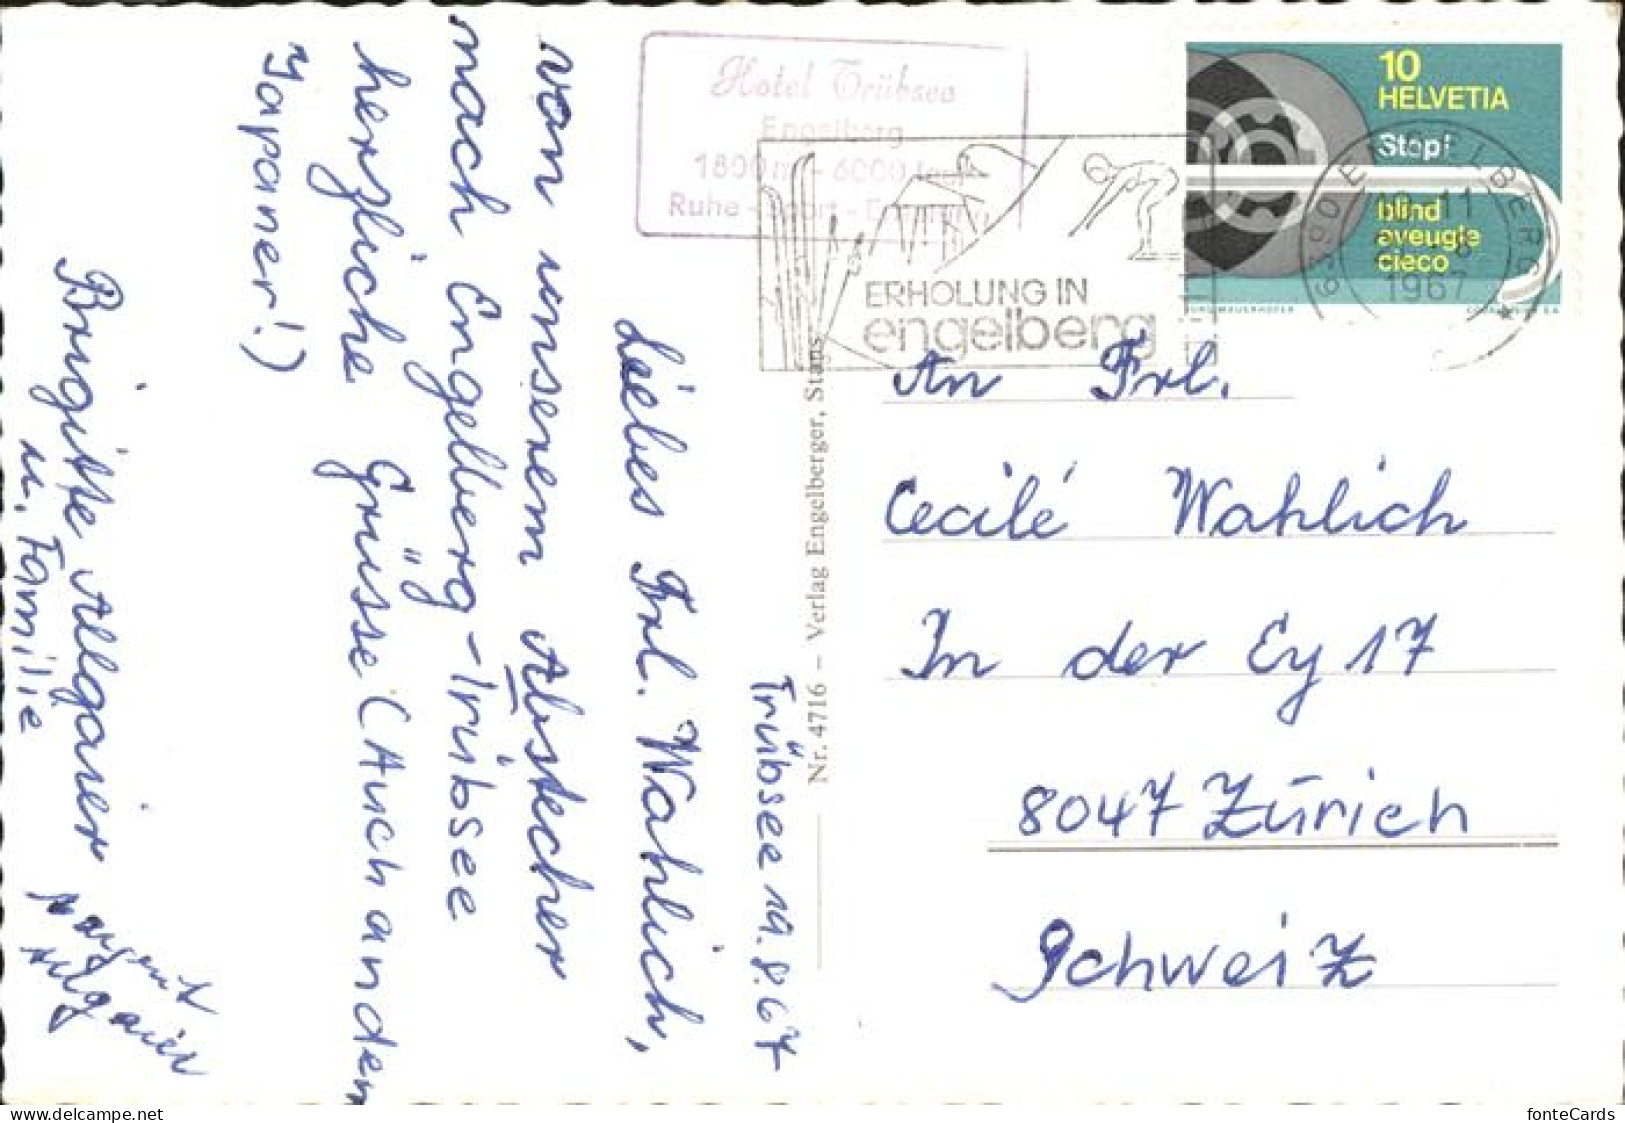 Hotel Trübsee
Engelberg
1800 m - 6000
Ruhe - Sport -
ERHOLUNG IN
engelberg
10
HELVETIA
Stop!
blind
aveugle
cieco
6390 ENGELBERG
1967
Nr. 4716 – Verlag Engelberger, Stans
Trübsee 19.8.67
Liebes Frl. Wahlich,
von unserem Abstecher
nach Engelberg-Trübsee
herzliche Grüsse (Auch an den
Japaner!)
Brigitte Allgaier
u. Familie
Margrit
Allgaier
An Frl.
Cecilé Wahlich
In der Ey 17
8047 Zürich
Schweiz
fonteCards